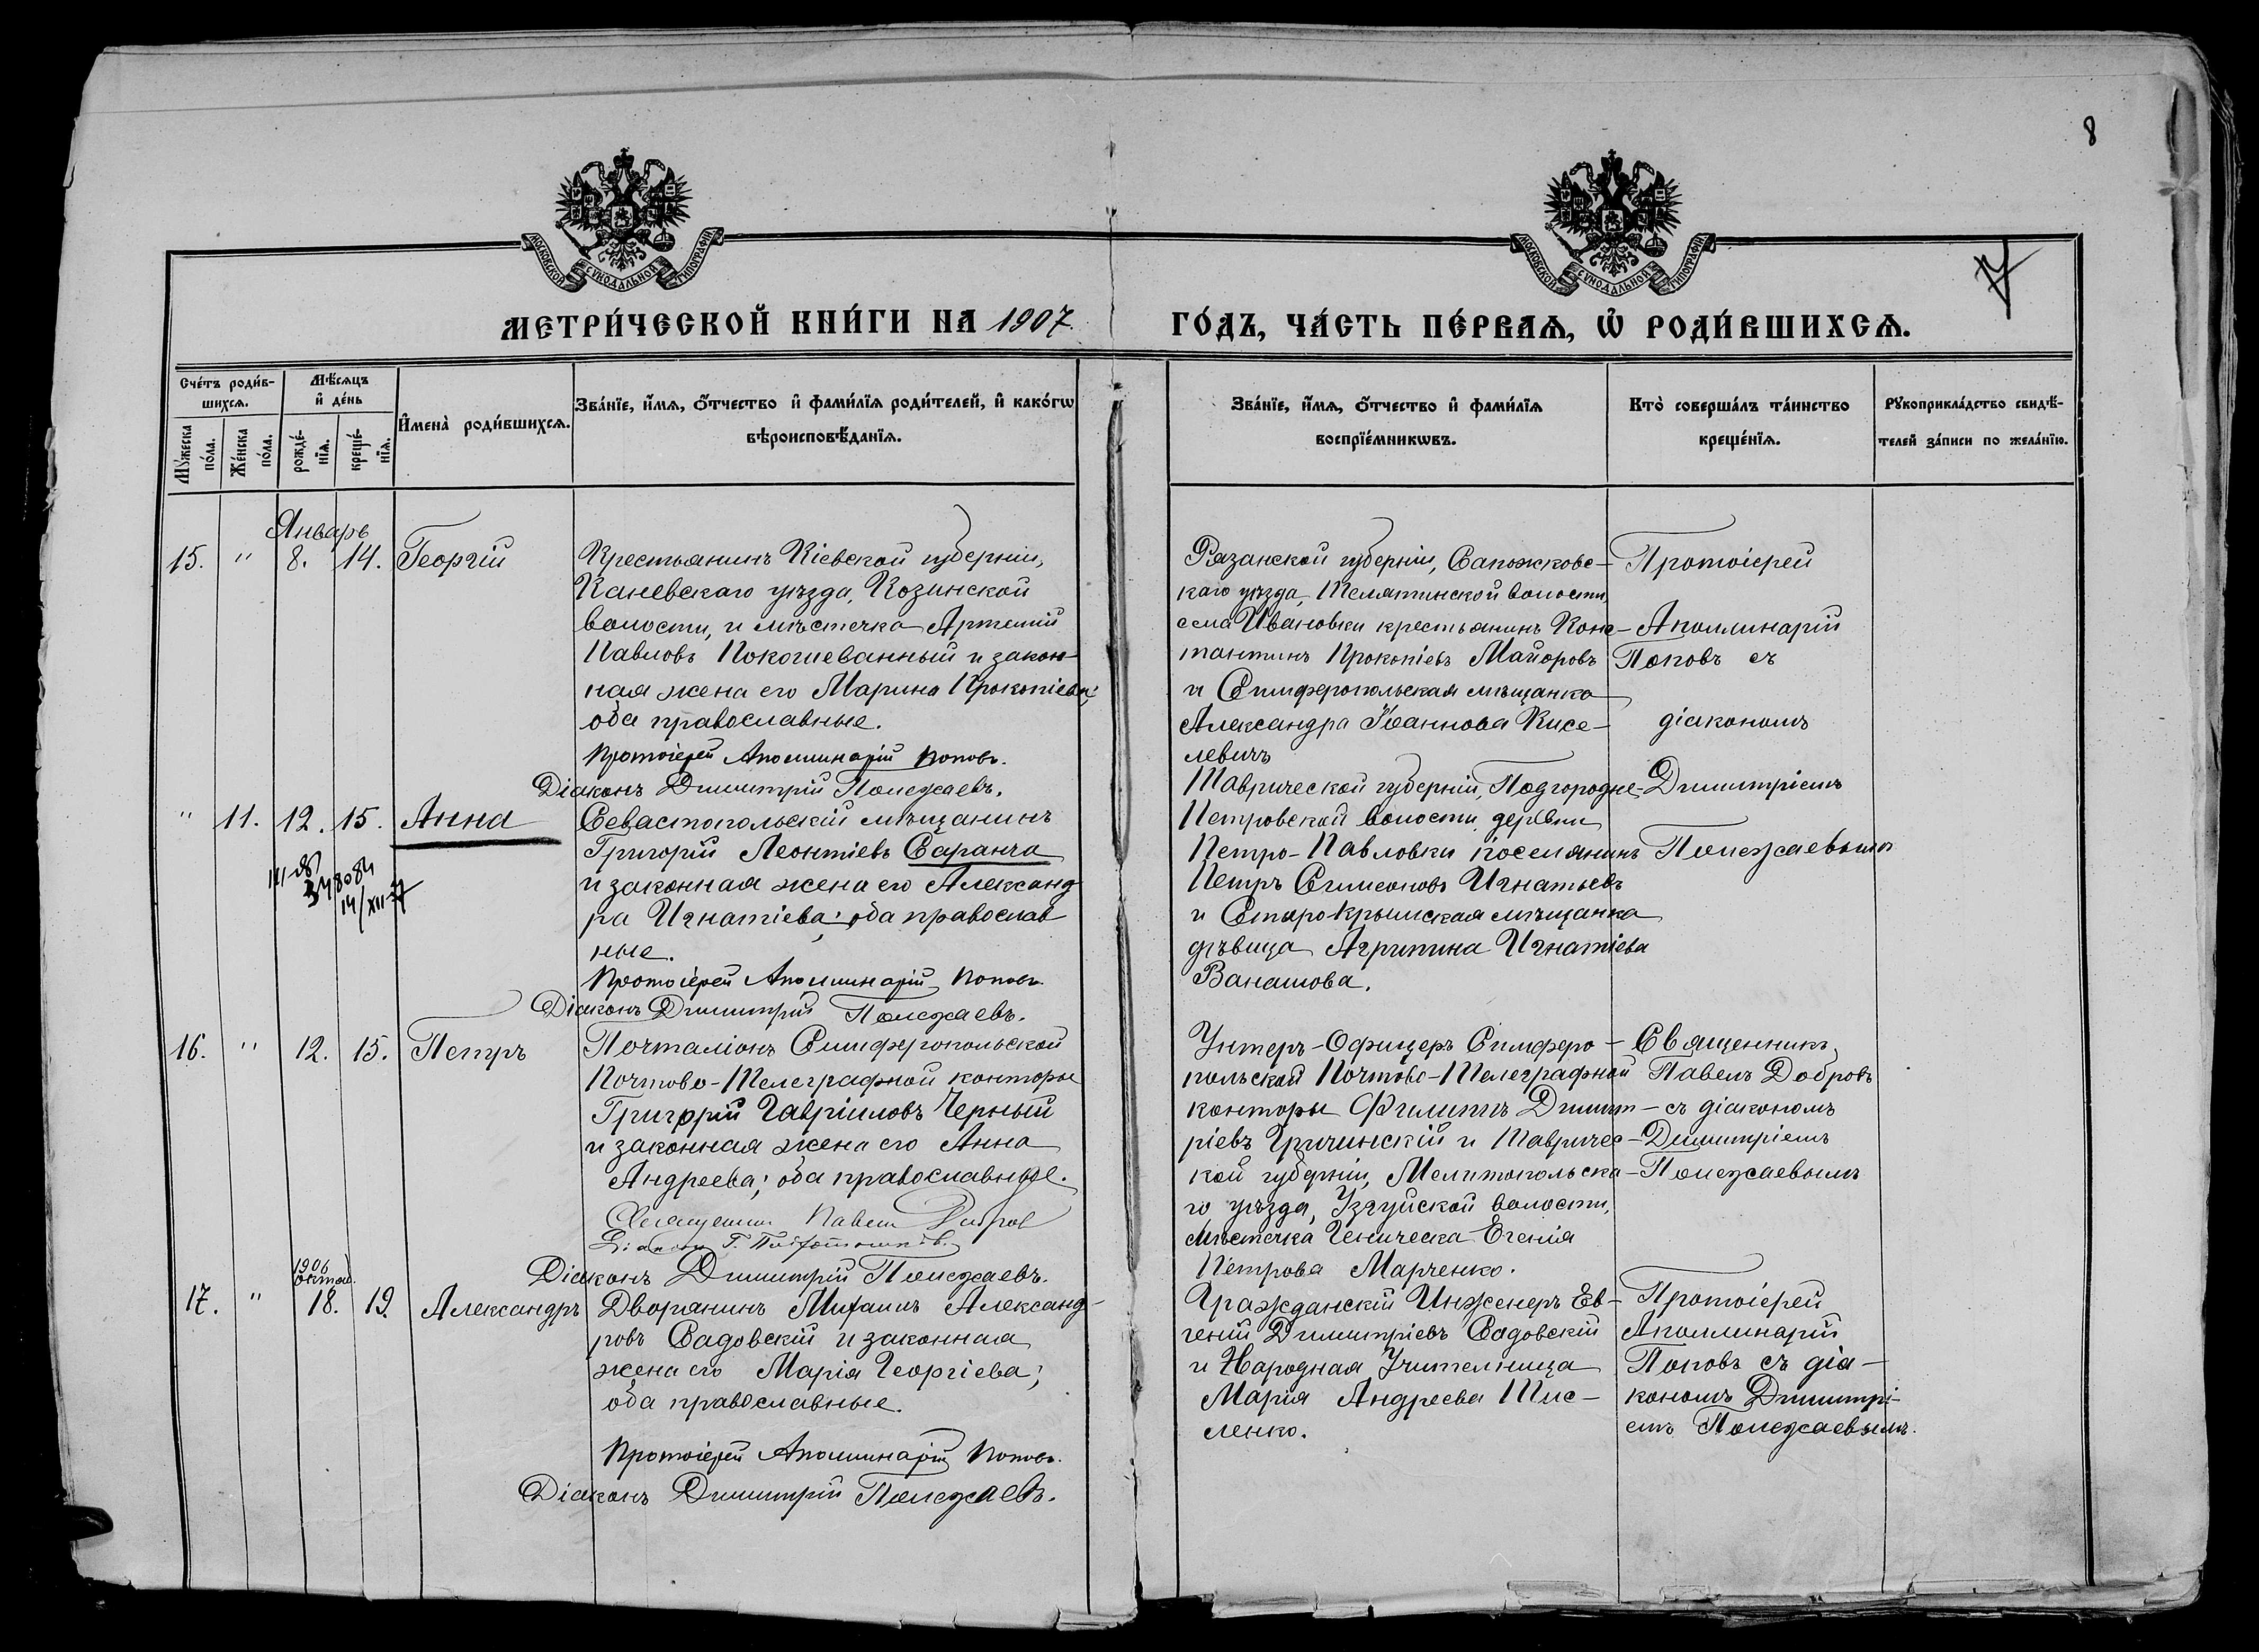 8
7
МОСКОВСКОЙ СѴНОДАЛЬНОЙ ТИПОГРАФІИ
МОСКОВСКОЙ СѴНОДАЛЬНОЙ ТИПОГРАФІИ
МЕТРИ́ЧЕСКОЙ КНИ́ГИ НА 1907. ГО́ДЪ, ЧА́СТЬ ПЕ́РВАѦ, Ѡ҆ РОДИ́ВШИХСѦ.
Сче́тъ роди́в-
шихсѧ.
Мѣ́сѧцъ
и҆ де́нь
Му́жеска
по́ла.
Же́нска
по́ла.
рожде́-
нїѧ.
креще́-
нїѧ.
И҆мена̀ роди́вшихсѧ.
Зва́нїе, и҆́мѧ, ѻ҆́тчество и҆ фами́лїѧ роди́телей, и҆ како́гѡ
вѣроисповѣ́данїѧ.
Зва́нїе, и҆́мѧ, ѻ҆́тчество и҆ фами́лїѧ
воспрїе́мникѡвъ.
Кто̀ соверша́лъ та́инство
креще́нїѧ.
Рꙋкоприкла́дство свидѣ́-
телей за́писи по жела́нїю.
Январь
15. " 8. 14. Георгій
Крестьянинъ Кіевской губерніи,
Каневскаго уѣзда, Козинской
волости, и мѣстечка Артемій
Павловъ Покошеванный и закон-
ная жена его Марина Прокопіева;
оба православные.
Протоіерей Аполлинарій Поповъ.
Діаконъ Димитрій Полежаевъ.
Рязанской губерніи, Сапожковс-
каго уѣзда, Телятинской волости,
села Ивановки крестьянинъ Конс-
тантинъ Прокопіевъ Майоровъ
и Симферопольская мѣщанка
Александра Іоаннова Кисе-
левичъ
Протоіерей
Аполлинарій
Поповъ съ
діакономъ
Димитріемъ
Полежаевымъ
" 11. 12. 15. Анна
348084
14/XII-37
Севастопольскій мѣщанинъ
Григорій Леонтіевъ Саранча
и законная жена его Александ
ра Игнатіева; оба православ
ные.
Протоіерей Аполлинарій Поповъ.
Діаконъ Димитрій Полежаевъ.
Таврической губерніи, Подгородне-
Петровской волости, деревни
Петро-Павловки поселянинъ
Петръ Симеоновъ Игнатьевъ
и Старокрымская мѣщанка
дѣвица Агрипина Игнатіева
Ванашова.
16. " 12. 15. Петръ
Почталіонъ Симферопольской
Почтово-Телеграфной конторы
Григорій Гавріиловъ Черный
и законная жена его Анна
Андреева; оба православные.
Священник Павел Добров
Діаконъ Г.
Діаконъ Димитрій Полежаевъ.
Унтеръ-Офицеръ Симферо-
польской Почтово-Телеграфной
конторы Филиппъ Димит-
ріевъ Гричинскій и Тавричес-
кой губерніи, Мелитопольска-
го уѣзда, Узкуйской волости,
мѣстечка Геническа Евгенія
Петрова Марченко.
Священникъ
Павелъ Добровъ
съ діакономъ
Димитріемъ
Полежаевымъ
1906
октяб.
17. " 18. 19. Александръ
Дворянинъ Михаилъ Александ-
ровъ Садовскій и законная
жена его Марія Георгіева;
оба православные.
Протоіерей Аполлинарій Поповъ.
Діаконъ Димитрій Полежаевъ.
Гражданскій Инженеръ Ев-
геній Димитріевъ Садовскій
и Народная Учительница
Марія Андреева Тис-
ленко.
Протоіерей
Аполлинарій
Поповъ съ діа-
кономъ Димитрі-
емъ Полежаевымъ.